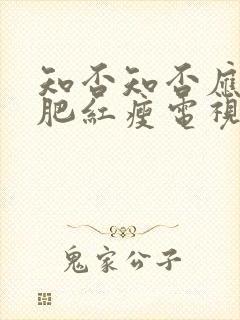 知否知否應
肥紅瘦電視
鬼家公子